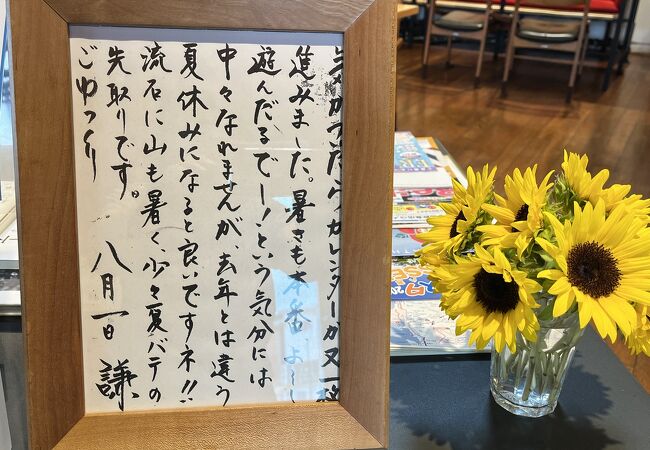 気がついたらカレンダーが又一段
進みました。暑さも本番、よーし
遊んだるでー!という気分には
中々なれませんが、去年とは違う
夏休みになると良いですネ!!
流石に山も暑く、少々夏バテの
先取りです。
ごゆっくり
八月一日 謙